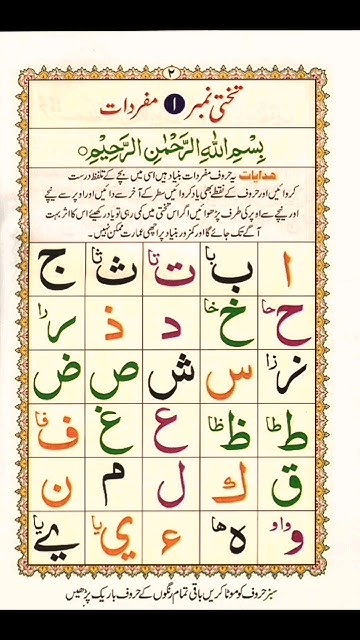 ۲
تختی نمبر ۱ مفردات
بِسْمِ اللّٰهِ الرَّحْمٰنِ الرَّحِيْمِ
هدایات یہ حروف مفردات بنیاد ہیں اسی میں بچے کے تلفظ درست
کروائیں اور حروف کے نقطے بھی یاد کروائیں سطر کے آخر سے دائیں اور اوپر سے نیچے
اور نیچے سے اوپر کی طرف پڑھوائیں اگر اس تختی میں کمی رہی تو یاد رکھیئے اس کا اثر بہت
آگے تک جائے گا اور کمزور بنیاد پر اچھی عمارت ممکن نہیں۔
ا ب با ت تا ث ثا ج
ح حا خ خا د ذ ر را
ز زا س ش ص ض
ط طا ظ ظا ع غ ف فا
ق ك ل م ن
و واو ه ها ء ي یا ے یا
سبز حروف کو موٹا کریں باقی تمام رنگوں کے حروف باریک پڑھیں